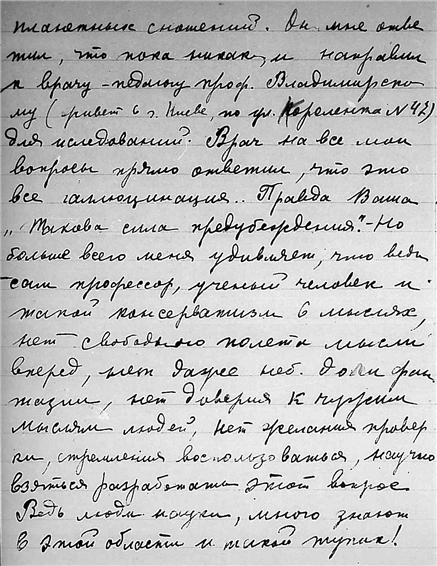 планетных сношений. Он мне отве
тил, что пока никак, и направил
к врачу-педологу проф. Владимирско
му (живет в г. Киеве, по ул. Короленка N 42)
для иследований. Врач на все мои
вопросы прямо ответил, что это
все галлюцинация.. Правда Ваша
„Такова сила предубеждения".-Но
больше всего меня удивляет, что ведь
сам профессор, ученый человек и
такой консерватизм в мыслях,
нет свободного полета мысли
вперед, нет даже неб. доли фан
тазии, нет доверия к чужим
мыслям людей, нет желания провер
ги, стремления воспользоваться, научно
взяться разработать этот вопрос
Ведь люди науки, много знают
в этой области и такой тупик!